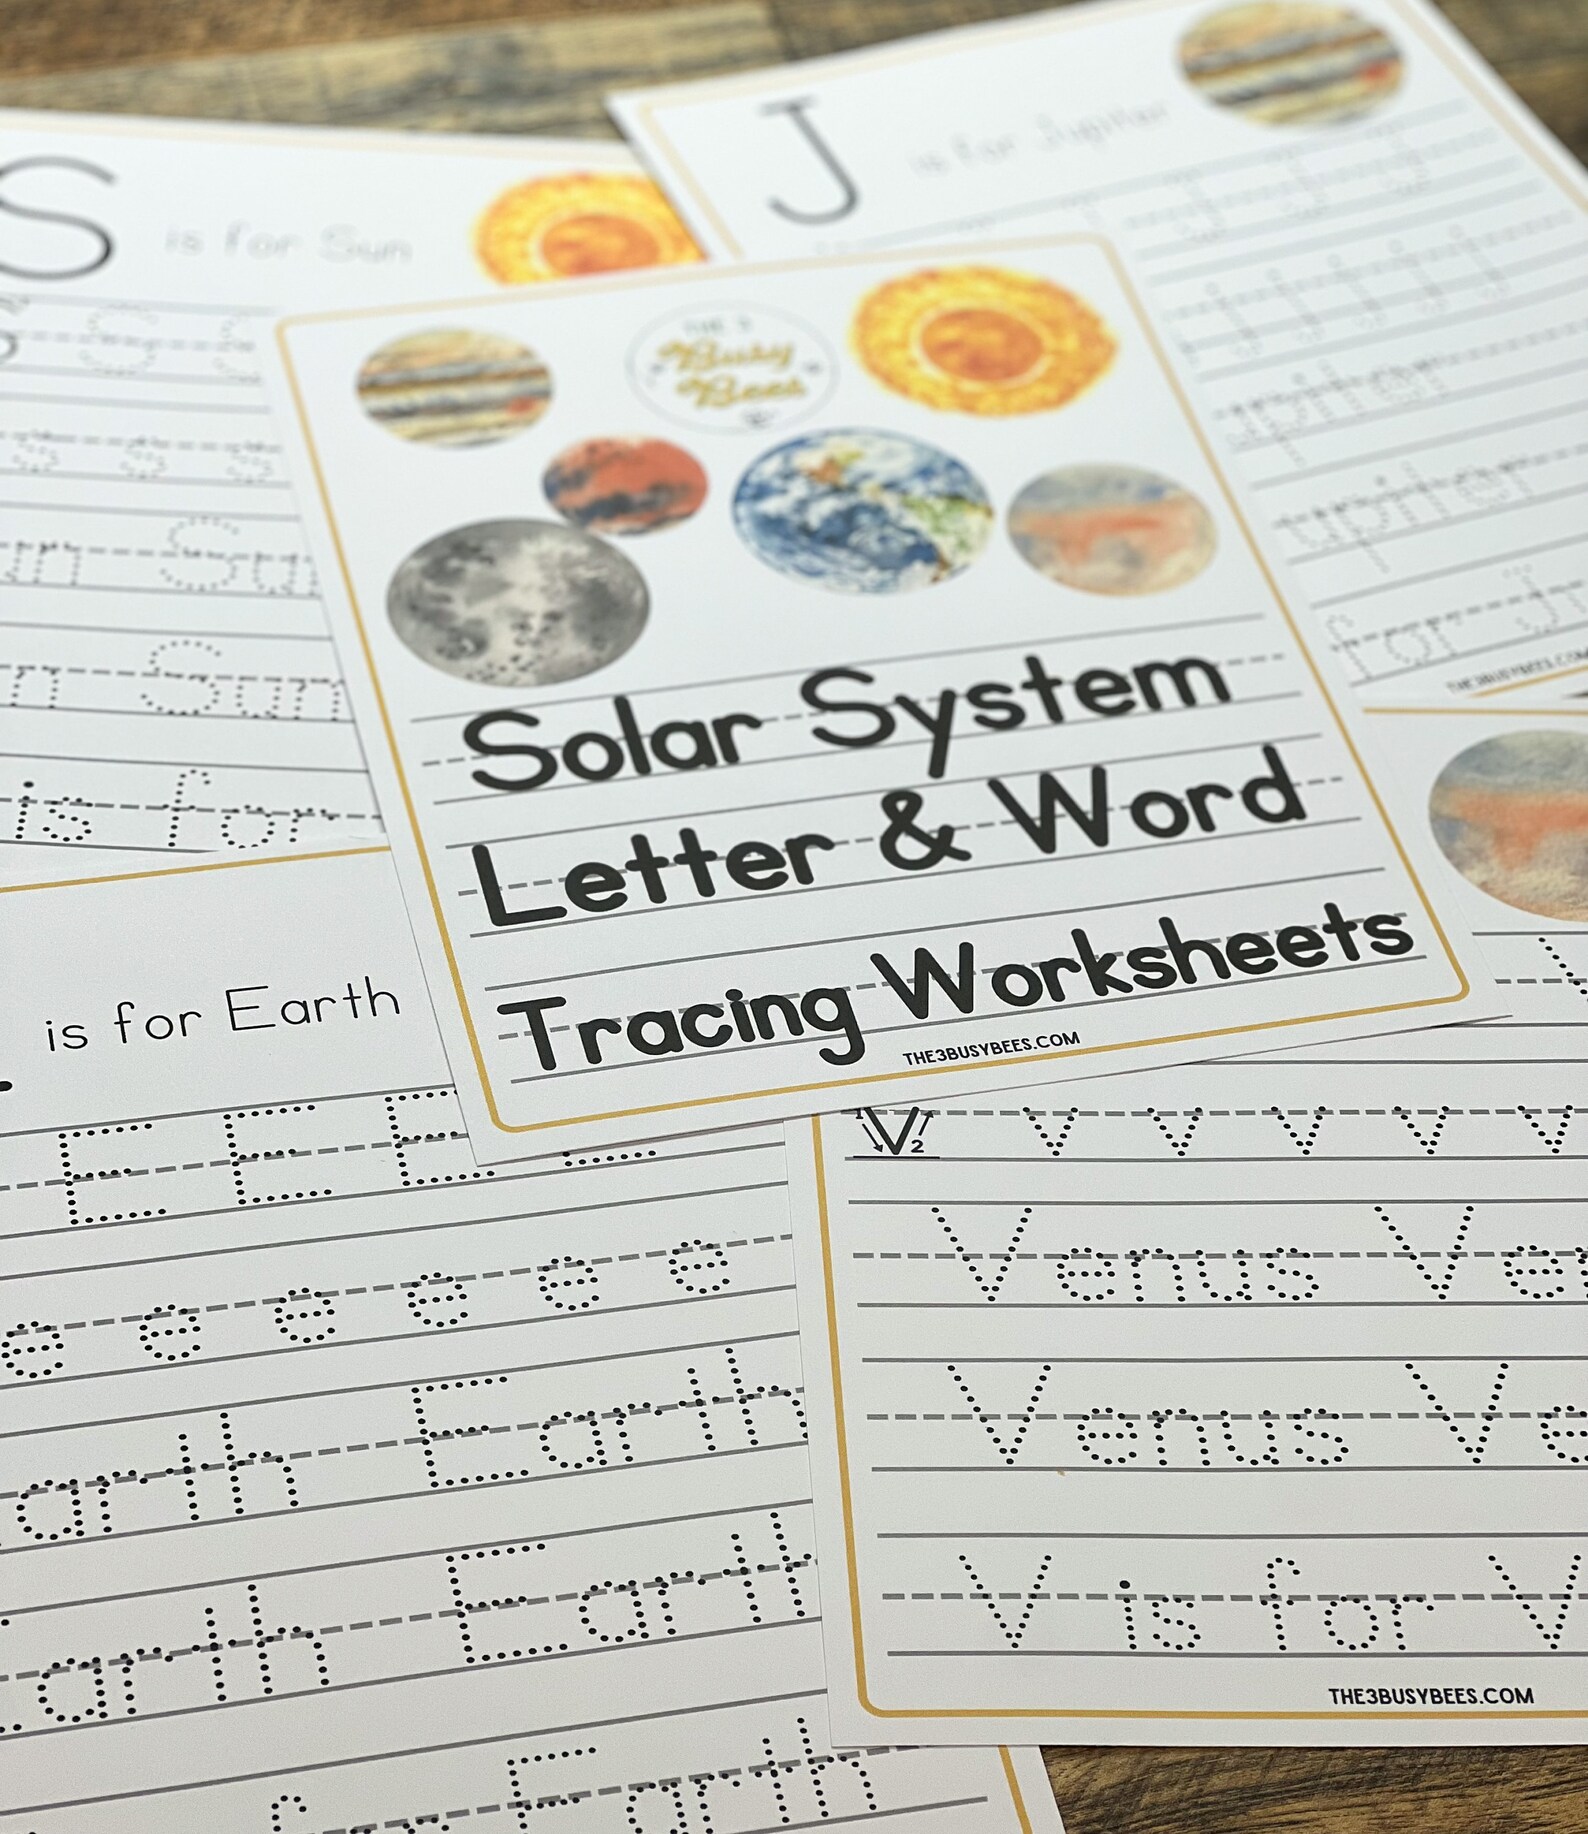 J is for Jupiter
S is for Sun
THE 3
Busy
Bees
Solar System
Letter & Word
Tracing Worksheets
THE3BUSYBEES.COM
S S
s s s
Sun
Sun
is for
j j j j
for J
THE3BUSYBEES.COM
is for Earth
E E E
e e e e e e
Earth
Earth
Earth
V 1 2 v v v v v
Venus
Venus
V is for V
THE3BUSYBEES.COM